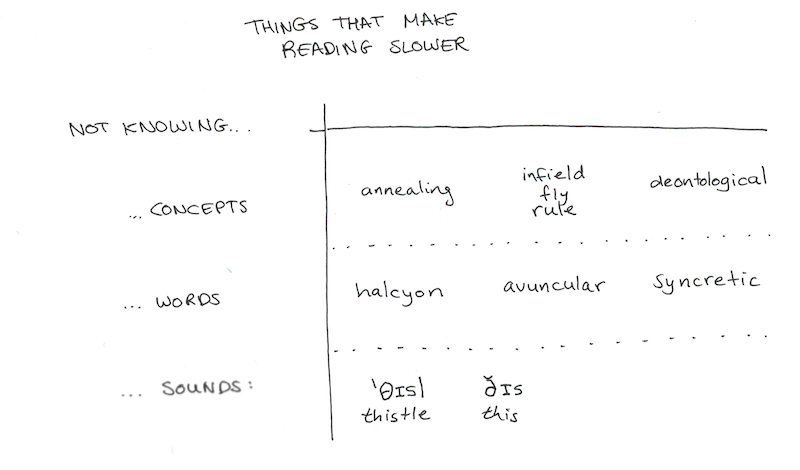 THINGS THAT MAKE
READING SLOWER
NOT KNOWING...
... CONCEPTS
annealing
infield
fly
rule
deontological
... WORDS
halcyon
avuncular
syncretic
... SOUNDS:
ˈθɪsl
thistle
ðɪs
this